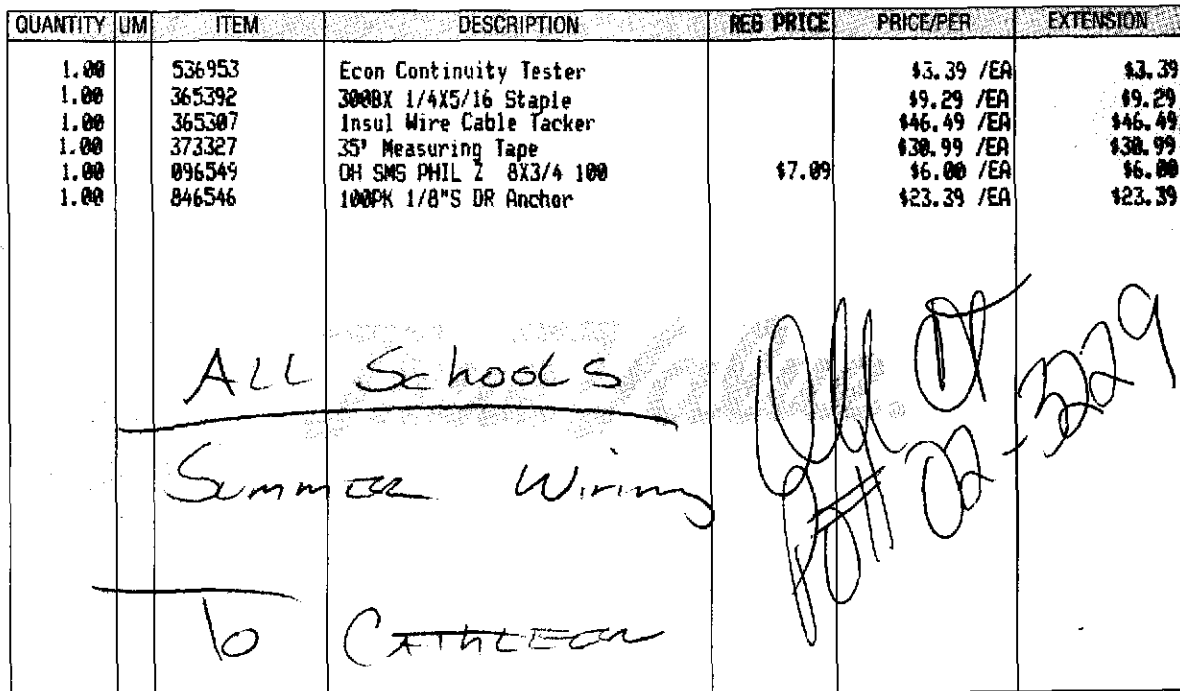 QUANTITY UM ITEM DESCRIPTION REG PRICE PRICE/PER EXTENSION
1.00 536953 Econ Continuity Tester $3.39 /EA $3.39
1.00 365392 300BX 1/4X5/16 Staple $9.29 /EA $9.29
1.00 365307 Insul Wire Cable Tacker $46.49 /EA $46.49
1.00 373327 35' Measuring Tape $30.99 /EA $30.99
1.00 096549 OH SMS PHIL Z 8X3/4 100 $7.09 $6.00 /EA $6.00
1.00 846546 100PK 1/8"S DR Anchor $23.39 /EA $23.39
ALL Schools
Summer Wiring
02-3229
to CATHLEEN